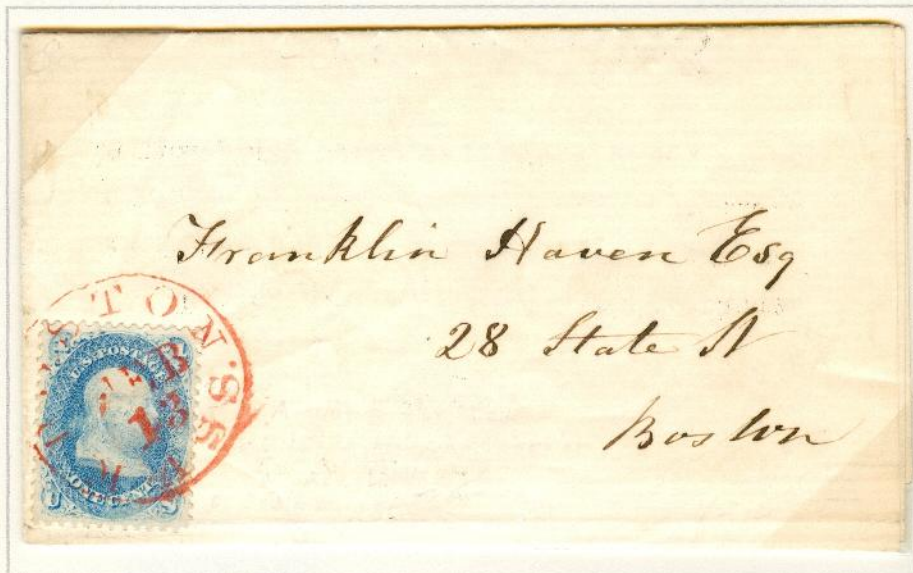 Franklin Haven Esq
28 State St
Boston
U.S. POSTAGE
ONE CENT